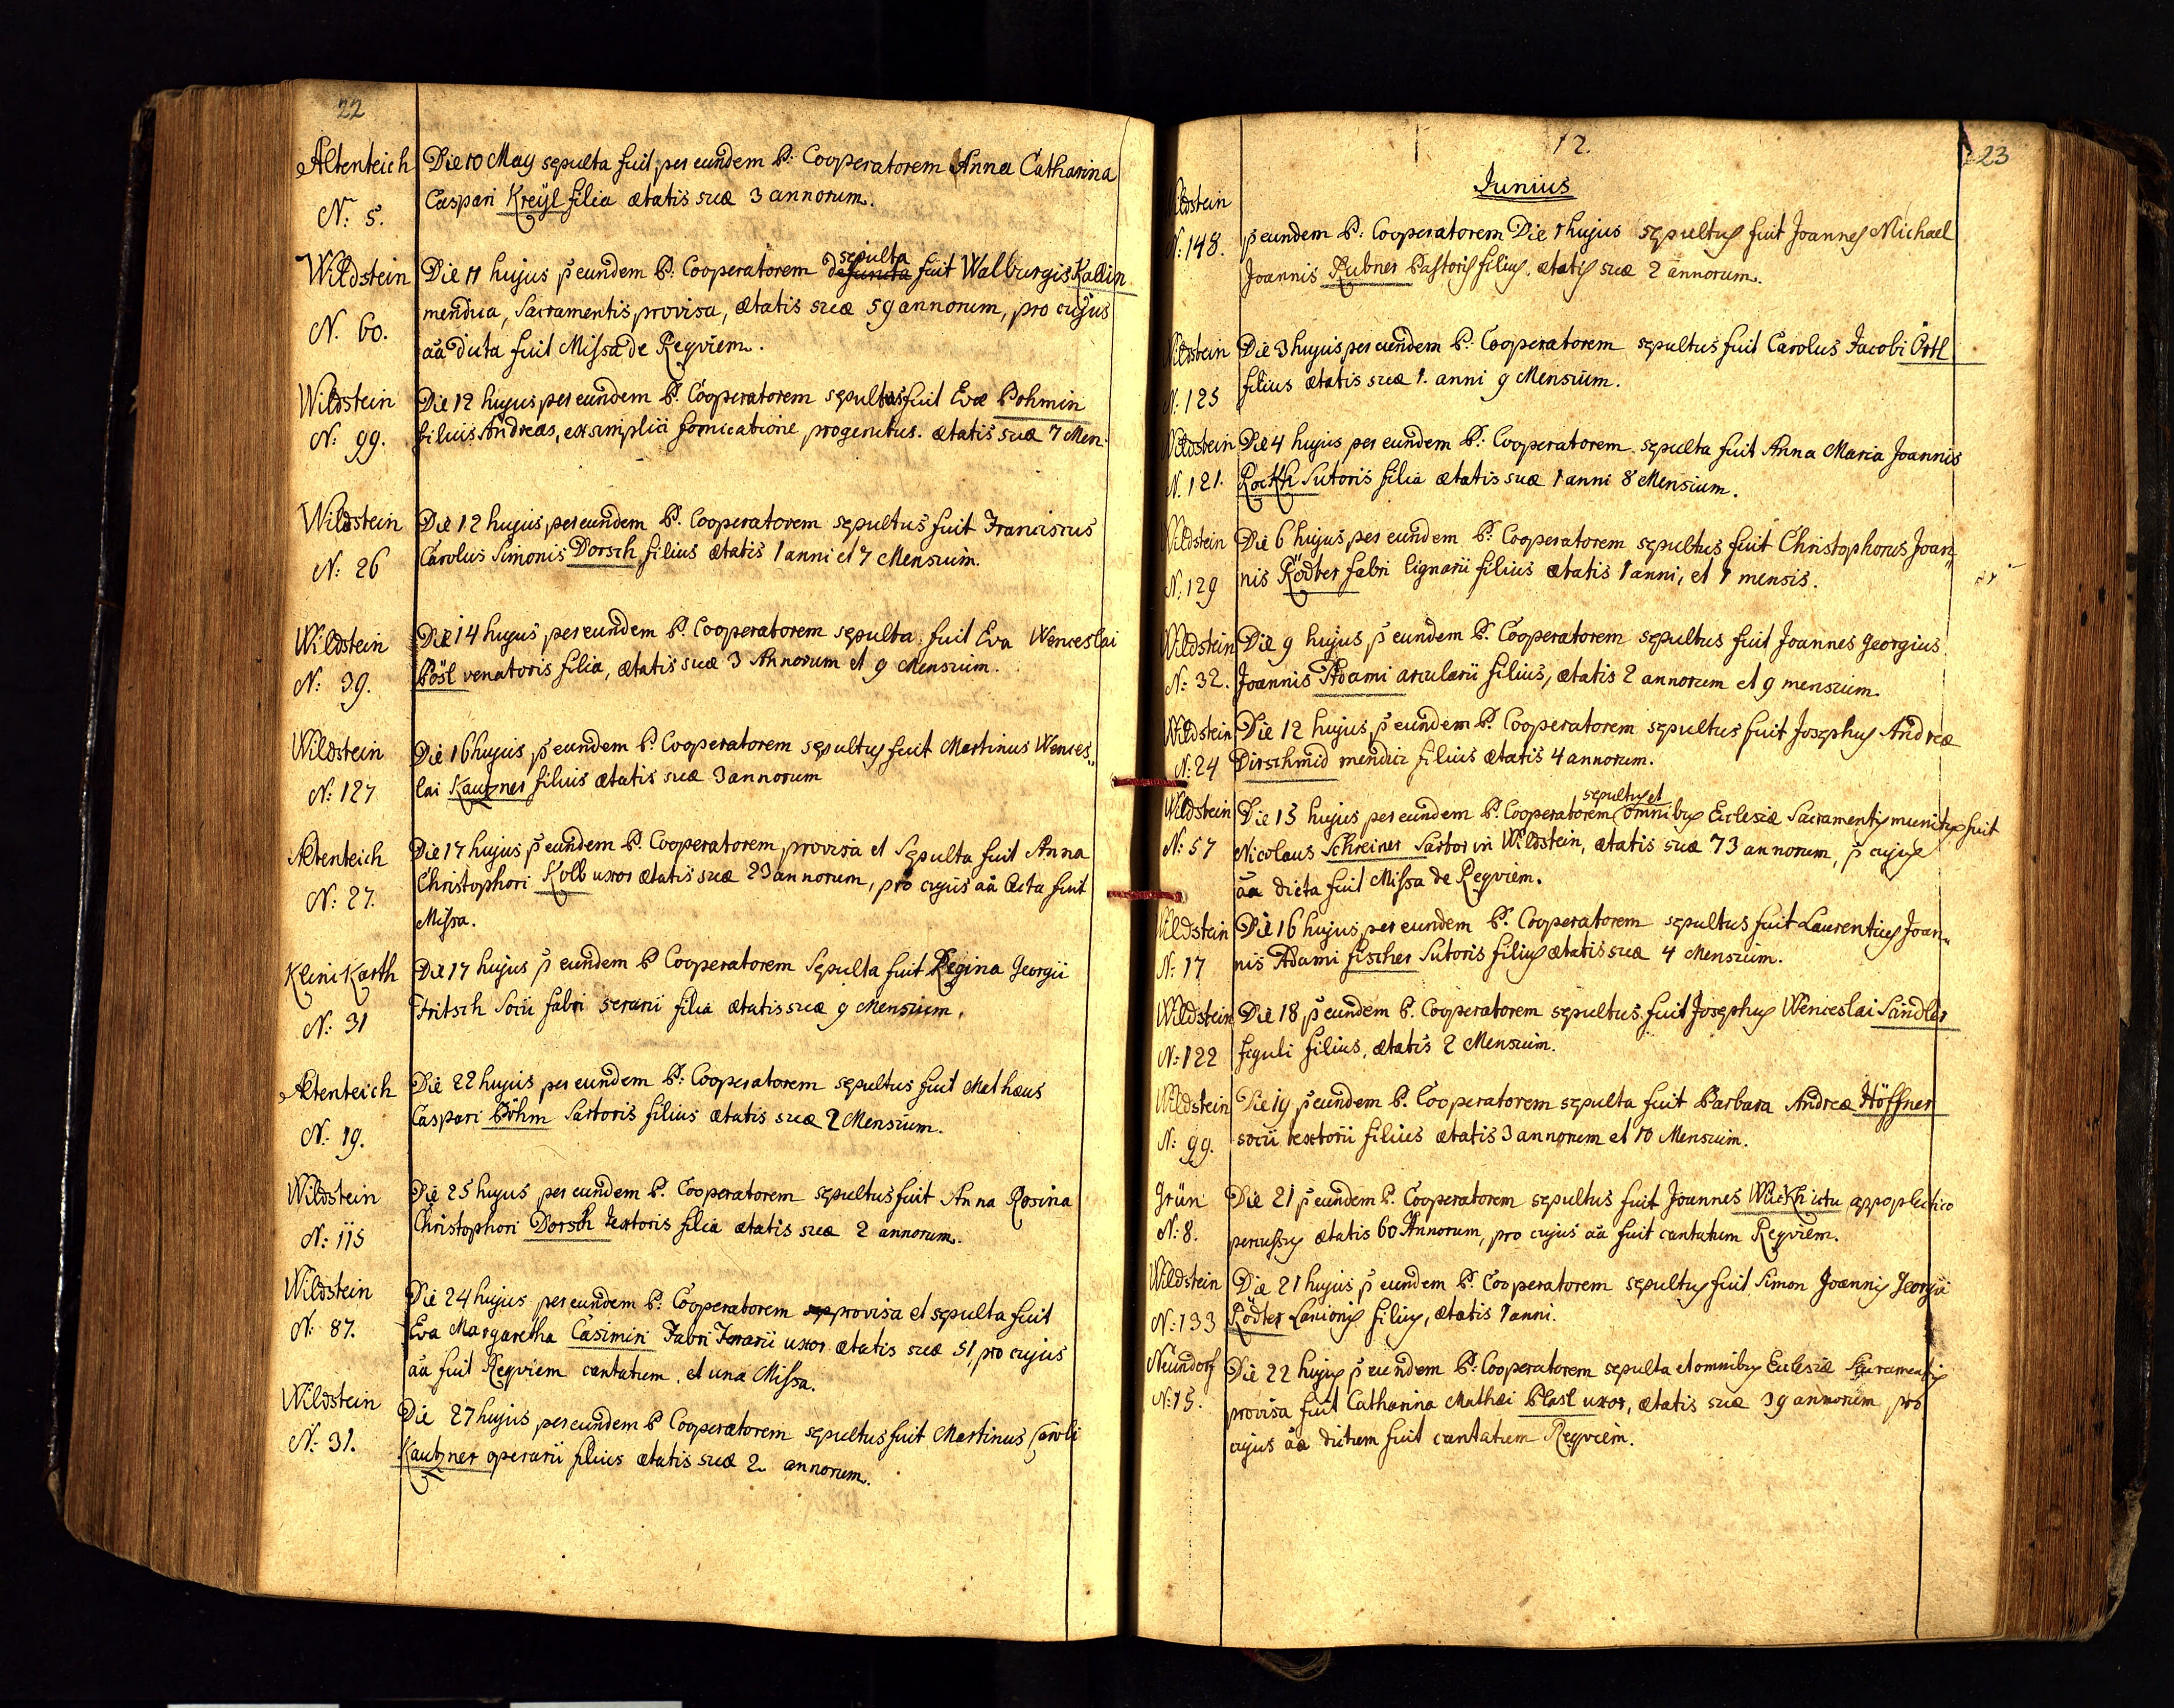 22
Altenteich
N: 5.
Die 10 May sepulta fuit per eundem P: Cooperatorem Anna Catharina
Caspari Kreÿl filia ætatis suæ 3 annorum.
Wildstein
N. 60.
sepulta
Die 11 hujus p eundem P. Cooperatorem defuncta fuit Walburgis Kallin
mendica, Sacramentis provisa, ætatis suæ 59 annorum, pro cujus
aâ dicta fuit Missa de Reqviem.
Wildstein
N: 99.
Die 12 hujus per eundem P. Cooperatorem sepultus fuit Evæ Böhmin
filius Andreas, ex simplici fornicatione progenitus. ætatis suæ 7 Men.
Wildstein
N: 26
Die 12 hujus, per eundem P. Cooperatorem sepultus fuit Franciscus
Carolus Simonis Dorsch filius ætatis 1 anni et 7 Mensium.
Wildstein
N: 39.
Die 14 hujus per eundem P. Cooperatorem sepulta fuit Eva Wenceslai
Pösl venatoris filia, ætatis suæ 3 Annorum et 9 Mensium.
Wildstein
N: 127
Die 16 hujus p eundem P. Cooperatorem sepultus fuit Martinus Wences„
lai Kautzner filius ætatis suæ 3 annorum
Altenteich
N: 27.
Die 17 hujus p eundem P. Cooperatorem provisa et Sepulta fuit Anna
Christophori Kolb uxor ætatis suæ 23 annorum, pro cujus aâ lecta fuit
Missa.
Klein Karth
N: 31
Die 17 hujus p eundem P Cooperatorem Sepulta fuit Regina Georgii
Fritsch Socii fabri serarii filia ætatis suæ 9 Mensium.
Altenteich
N: 19.
Die 22 hujus per eundem P: Cooperatorem sepultus fuit Mathæus
Caspari Böhm Sartoris filius ætatis suæ 2 Mensium.
Wildstein
N: 115
Die 25 hujus per eundem P. Cooperatorem sepultus fuit Anna Rosina
Christophori Dorsch textoris filia ætatis suæ 2 annorum.
Wildstein
N: 87.
Die 24 hujus per eundem P: Cooperatorem provisa et sepulta fuit
Eva Margaretha Casimiri Fabri ferrarii uxor ætatis suæ 51 pro cujus
aâ fuit Reqviem cantatum, et una Missa.
Wildstein
N: 31.
Die 27 hujus per eundem P Cooperatorem sepultus fuit Martinus Caroli
Kautzner operarii filius ætatis suæ 2 annorum.
12.
23
Junius
Wildstein
N: 148.
p eundem P: Cooperatorem Die 1 hujus sepultus fuit Joannes Michael
Joannis Rubner Pastoris filius, ætatis suæ 2 annorum.
Wildstein
N: 125
Die 3 hujus per eundem P: Cooperatorem sepultus fuit Carolus Jacobi Örtl
filius ætatis suæ 1. anni 9 Mensium.
Wildstein
N. 121.
Die 4 hujus per eundem P: Cooperatorem sepulta fuit Anna Maria Joannis
Rockh Sutoris filia ætatis suæ 1 anni 8 Mensium.
Wildstein
N: 129
Die 6 hujus per eundem P. Cooperatorem sepultus fuit Christophorus Joan„
nis Rödter fabri lignarii filius ætatis 1 anni, et 1 mensis.
Wildstein
N: 32.
Die 9 hujus p eundem P. Cooperatorem sepultus fuit Joannes Georgius
Joannis Adami arcularii filius, ætatis 2 annorum et 9 mensium.
Wildstein
N: 24
Die 12 hujus p eundem P. Cooperatorem sepultus fuit Josephus Andreæ
Dirschmid mendici filius ætatis 4 annorum.
Wildstein
N: 57
sepultus et
Die 15 hujus per eundem P. Cooperatorem omnibus Ecclesiæ Sacramentis munitus fuit
Nicolaus Schreiner Sartor in Wildstein, ætatis suæ 73 annorum, p cujus
aâ dicta fuit Missa de Reqviem.
Wildstein
N: 17
Die 16 hujus per eundem P. Cooperatorem sepultus fuit Laurentius Joan„
nis Adami fischer Sutoris filius ætatis suæ 4 Mensium.
Wildstein
N: 122
Die 18 p eundem P. Cooperatorem sepultus fuit Josephus Wenceslai Sandler
figuli filius, ætatis 2 Mensium.
Wildstein
N: 99.
Die 19 p eundem P. Cooperatorem sepulta fuit Barbara Andreæ Höffner
socii textorii filius ætatis 3 annorum et 10 Mensium.
Grün
N: 8.
Die 21 p eundem P. Cooperatorem sepultus fuit Joannes Wuckh ictu appoplectico
percussus ætatis 60 Annorum, pro cujus aâ fuit cantatum Reqviem.
Wildstein
N: 133
Die 21 hujus p eundem P. Cooperatorem sepultus fuit Simon Joannis Georgii
Rödter Lanionis filius, ætatis 1 anni.
Neündorf
N: 15.
Die 22 hujus p eundem P: Cooperatorem sepulta et omnibus Ecclesiæ Sacramentis
provisa fuit Catharina Mathæi Plasl uxor, ætatis suæ 39 annorum pro
cujus aâ dictum fuit cantatum Reqviem.